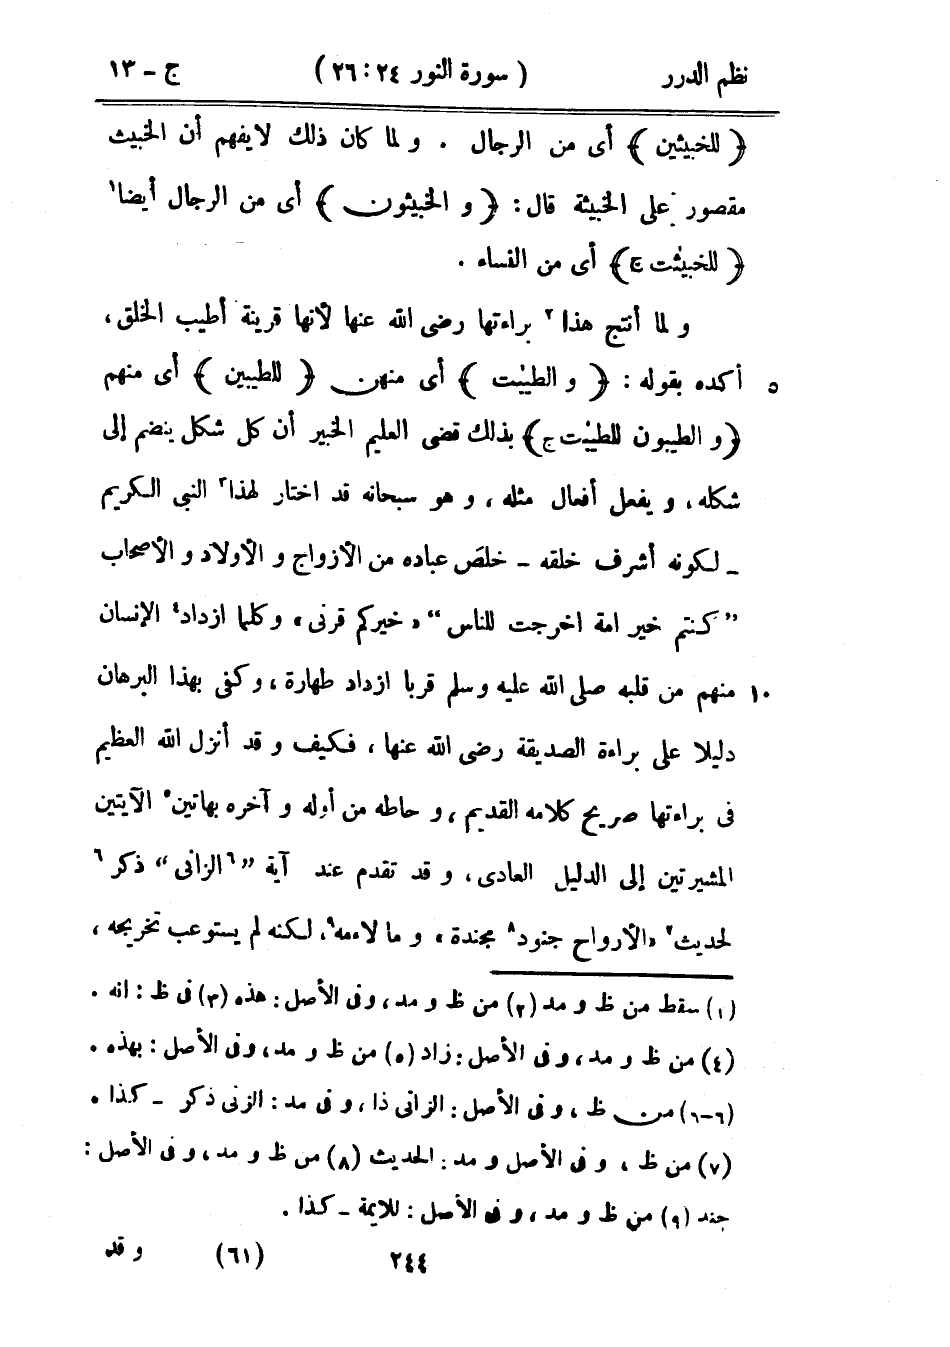 نظم الدرر ( سورة النور ٢٤ : ٢٦ ) ج - ١٣
﴿ للخبيثين ﴾ أى من الرجال . و لما كان ذلك لايفهم أن الخبيث
مقصور على الخبيثة قال : ﴿ و الخبيثون ﴾ أى من الرجال أيضا١
﴿ للخبيثٰت ج ﴾ أى من النساء .
و لما أنتج هذا٢ براءتها رضى الله عنها لأنها قرينة أطيب الخلق ،
٥ أكده بقوله : ﴿ و الطيبٰت ﴾ أى منهن ﴿ للطيبين ﴾ أى منهم
﴿ و الطيبون للطيبٰت ج ﴾ بذلك قضى العليم الخبير أن كل شكل ينضم إلى
شكله ، و يفعل أفعال مثله ، و هو سبحانه قد اختار لهذا٣ النبى الكريم
ـ لكونه أشرف خلقه ـ خلّص عباده من الأزواج و الأولاد و الأصحاب
” كنتم خير امة اخرجت للناس “ « خيركم قرنى » وكلما ازداد٤ الإنسان
١٠ منهم من قلبه صلى الله عليه وسلم قربا ازداد طهارة ، وكفى بهذا البرهان
دليلا على براءة الصديقة رضى الله عنها ، فكيف و قد أنزل الله العظيم
فى براءتها صريح كلامه القديم ، و حاطه من أوله و آخره بهاتين٥ الآيتين
المشيرتين إلى الدليل العادى ، و قد تقدم عند آية ”٦ الزانى “ ذكر٦
لحديث٧ « الأرواح جنود٨ مجندة » و ما لاءمه٩ ، لكنه لم يستوعب تخريجه ،
(١) سقط من ظ و مد (٢) من ظ و مد ، و فى الأصل : هذه (٣) فى ظ : انه .
(٤) من ظ و مد ، و فى الأصل : زاد (٥) من ظ و مد ، و فى الأصل : بهذه .
(٦-٦) من ظ ، و فى الأصل : الزانى ذا ، و فى مد : الزنى ذكر ـ كذا .
(٧) من ظ ، و فى الأصل و مد : الحديث (٨) من ظ و مد ، و فى الأصل :
جند (٩) من ظ و مد ، و فى الأصل : للايمة ـ كذا .
٢٤٤ (٦١) و قد